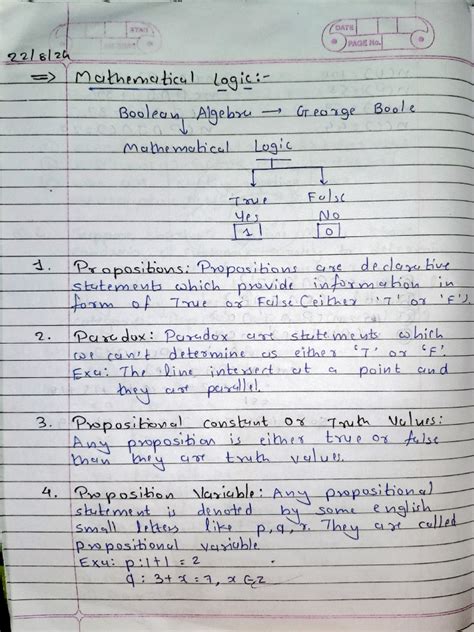 DATE
PAGE No.
22/8/24
⇒ Mathematical Logic:-
Boolean Algebra → George Boole
↓
Mathematical Logic
True False
Yes No
1 0
1. Propositions: Propositions are declarative
statements which provide information in
form of True or False (either 'T' or 'F').
2. Paradox: Paradox are statements which
we can't determine as either 'T' or 'F'.
Exa: The line intersect at a point and
they are parallel.
3. Propositional constant or Truth Values:
Any proposition is either true or false
than they are truth values.
4. Proposition Variable: Any propositional
statement is denoted by some english
small letters like p,q,r. They are called
propositional variable
Exa: p:1+1 = 2
q: 3+x=7, x∈Z